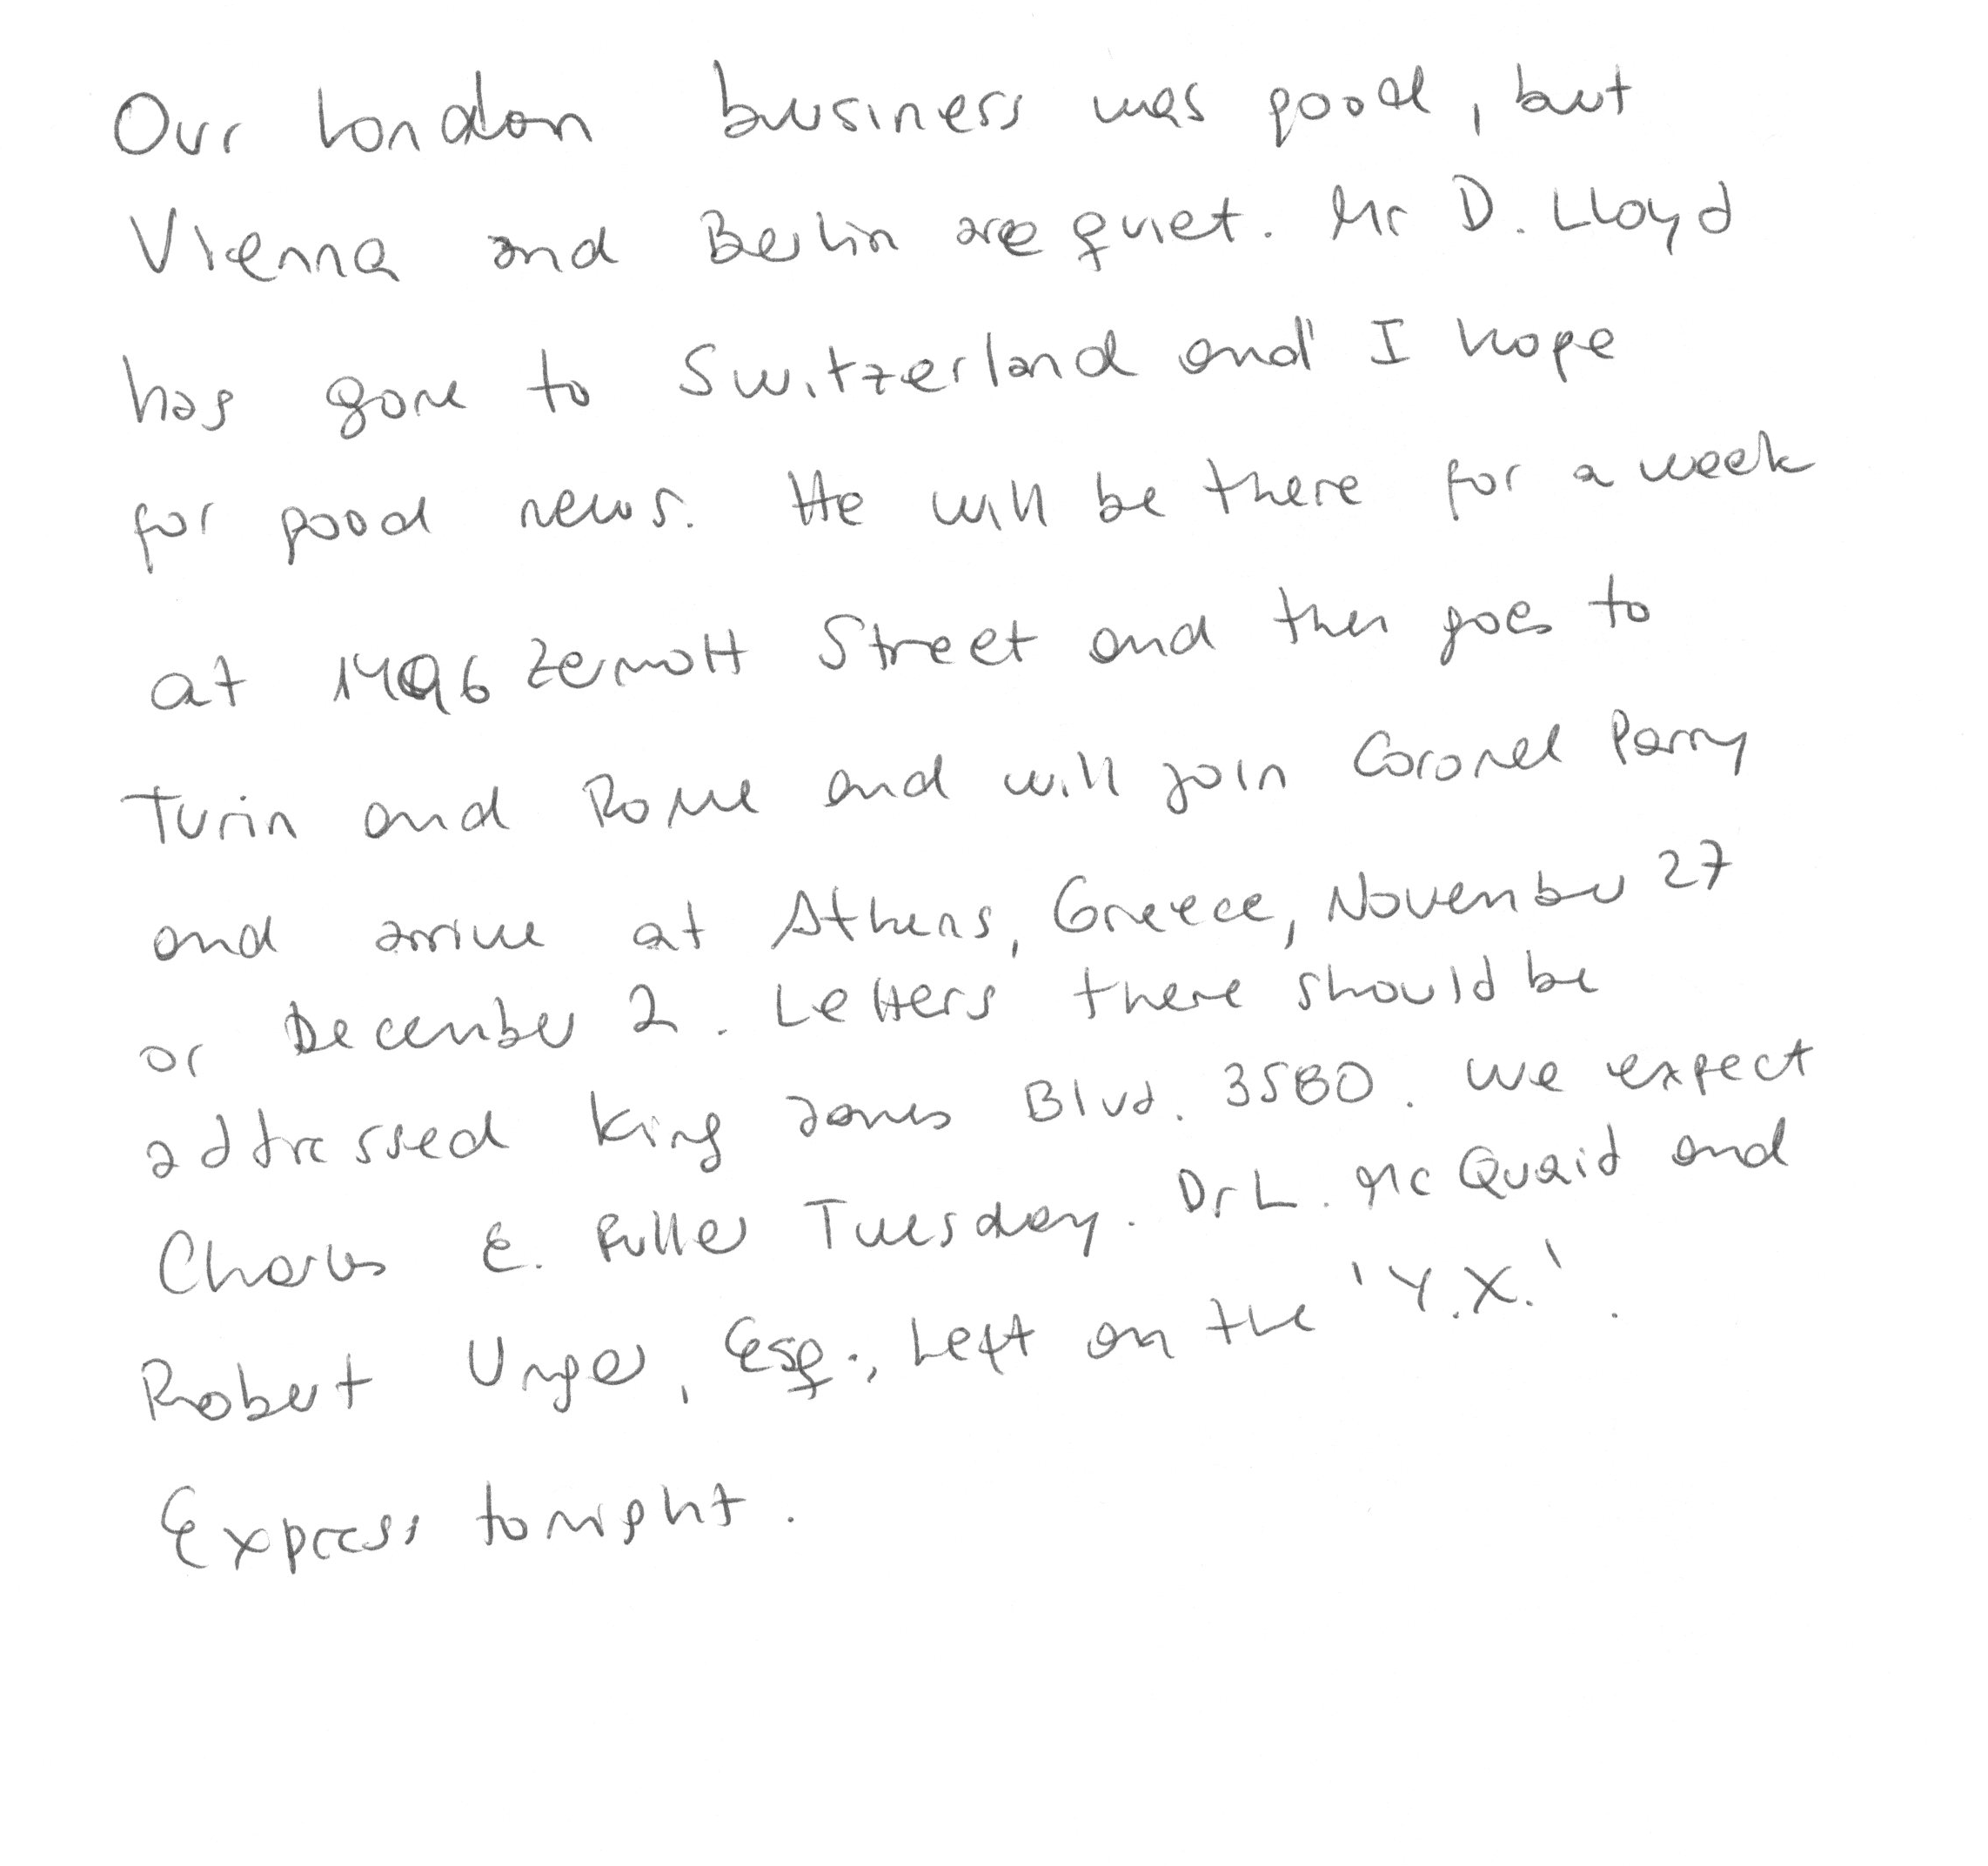 Our London business was good, but
Vienna and Berlin are quiet. Mr D. Lloyd
has gone to Switzerland and I hope
for good news. He will be there for a week
at 1496 Zermott Street and then goes to
Turin and Rome and will join Coronel Parry
and arrive at Athens, Greece, November 27
or December 2. Letters there should be
addressed King James Blvd. 3580. We expect
Charles E. Fuller Tuesday. Dr L. McQuaid and
Robert Unger, Esq., Left on the 'Y.X.'.
Express tonight.